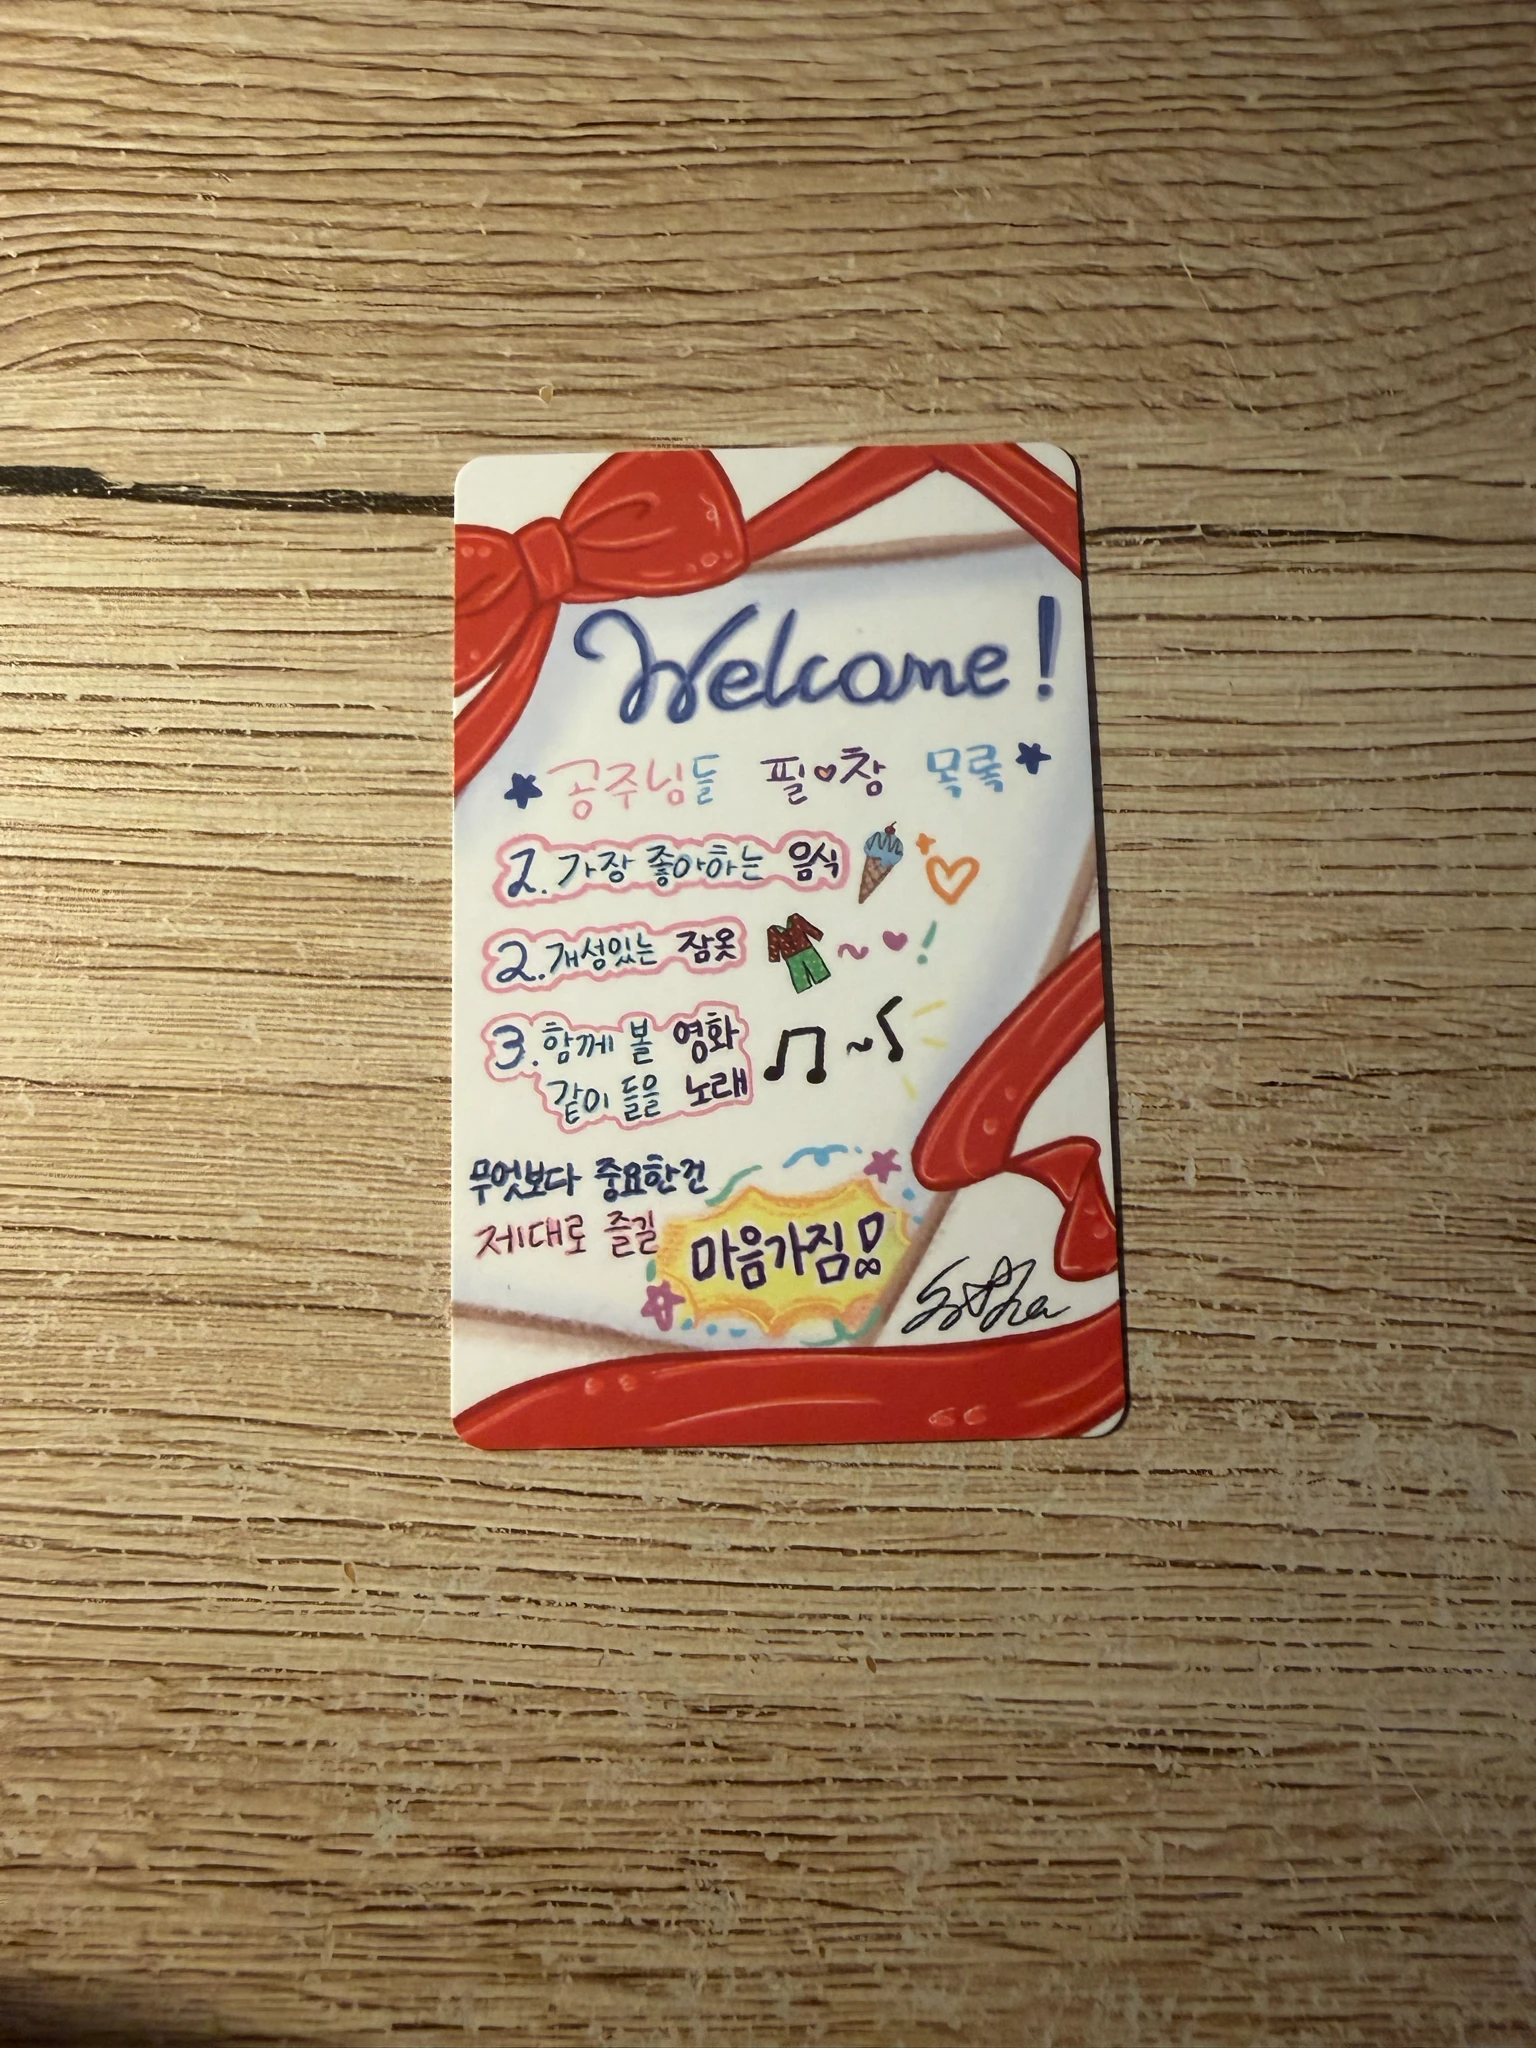 Welcome!
공주님들 필♡참 목록
1. 가장 좋아하는 음식
2. 개성있는 잠옷
3. 함께 볼 영화
같이 들을 노래
무엇보다 중요한건
제대로 즐길
마음가짐!